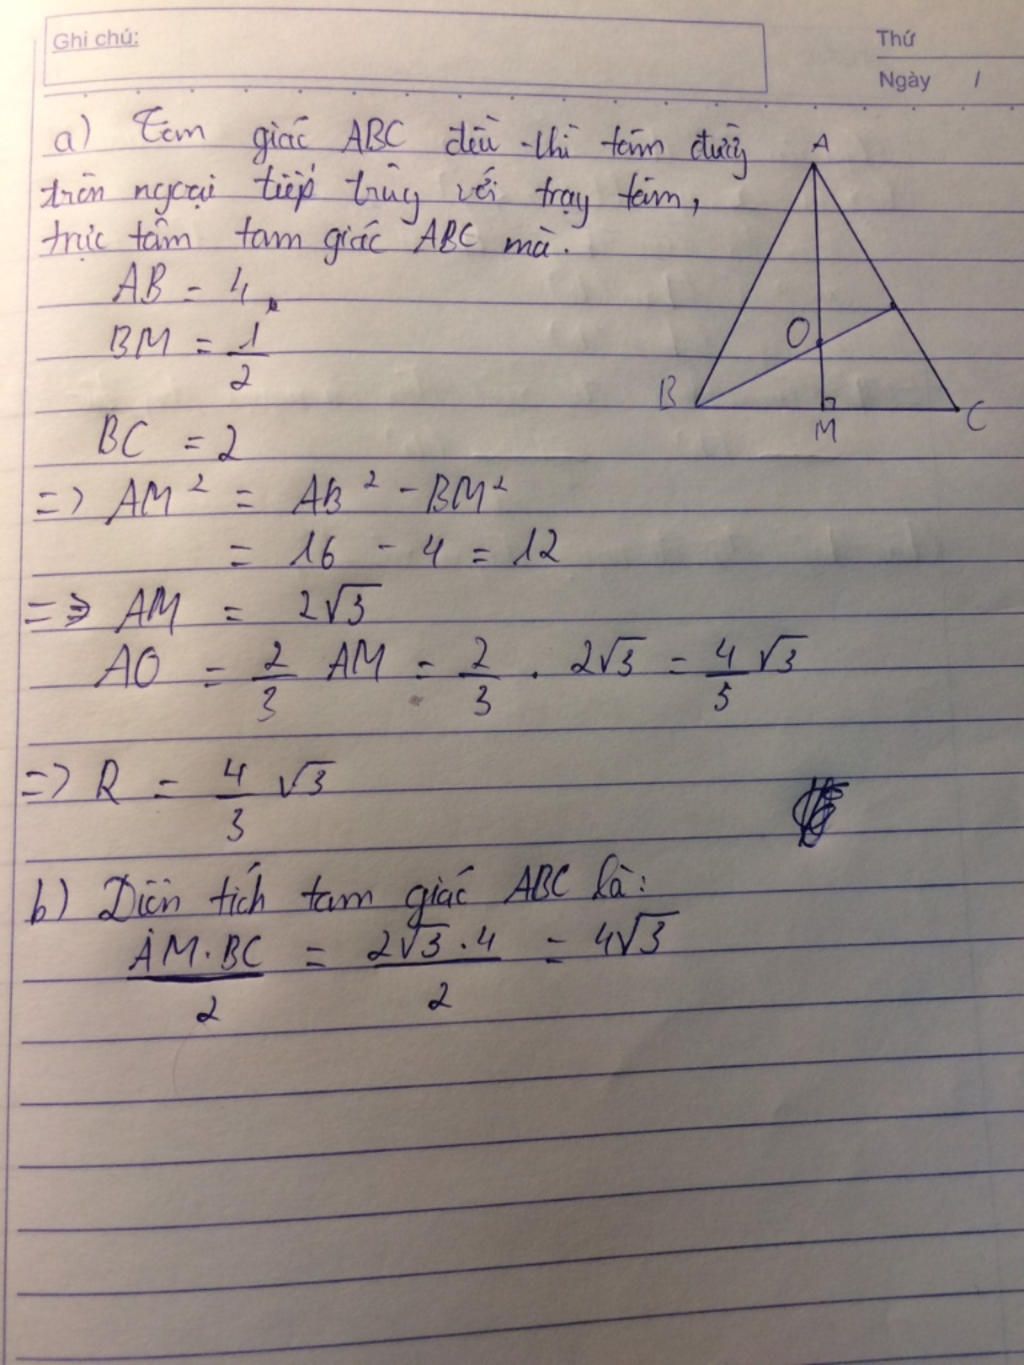 Ghi chú:
Thứ
Ngày /
a) Tam giác ABC đều thì tâm đường
tròn ngoại tiếp trùng với trọng tâm,
trực tâm tam giác ABC mà.
AB = 4
BM = 1/2
BC = 2
=> AM² = AB² - BM²
= 16 - 4 = 12
=> AM = 2√3
AO = 2/3 AM = 2/3 . 2√3 = 4/3 √3
=> R = 4/3 √3
b) Diện tích tam giác ABC là:
AM.BC/2 = 2√3.4/2 = 4√3
A
O
B
M
C